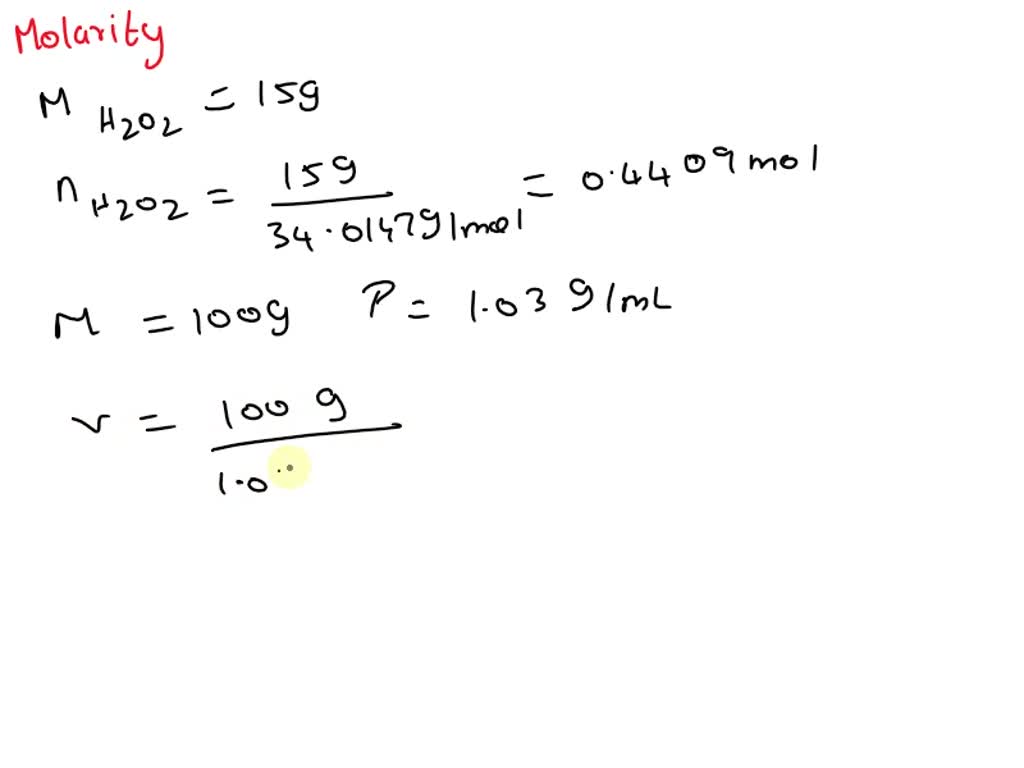 Molarity
M H2O2 = 15g
n H2O2 = 15g / 34.0147g/mol = 0.4409mol
M = 100g P = 1.03 g/mL
v = 100 g / 1.0